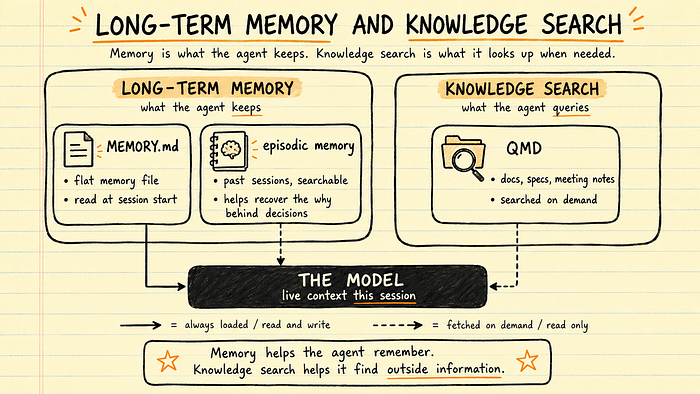 LONG-TERM MEMORY AND KNOWLEDGE SEARCH
Memory is what the agent keeps. Knowledge search is what it looks up when needed.
LONG-TERM MEMORY
what the agent keeps
MEMORY.md
• flat memory file
• read at session start
episodic memory
• past sessions, searchable
• helps recover the why
behind decisions
KNOWLEDGE SEARCH
what the agent queries
QMD
• docs, specs, meeting notes
• searched on demand
THE MODEL
live context this session
= always loaded / read and write
= fetched on demand / read only
Memory helps the agent remember.
Knowledge search helps it find outside information.